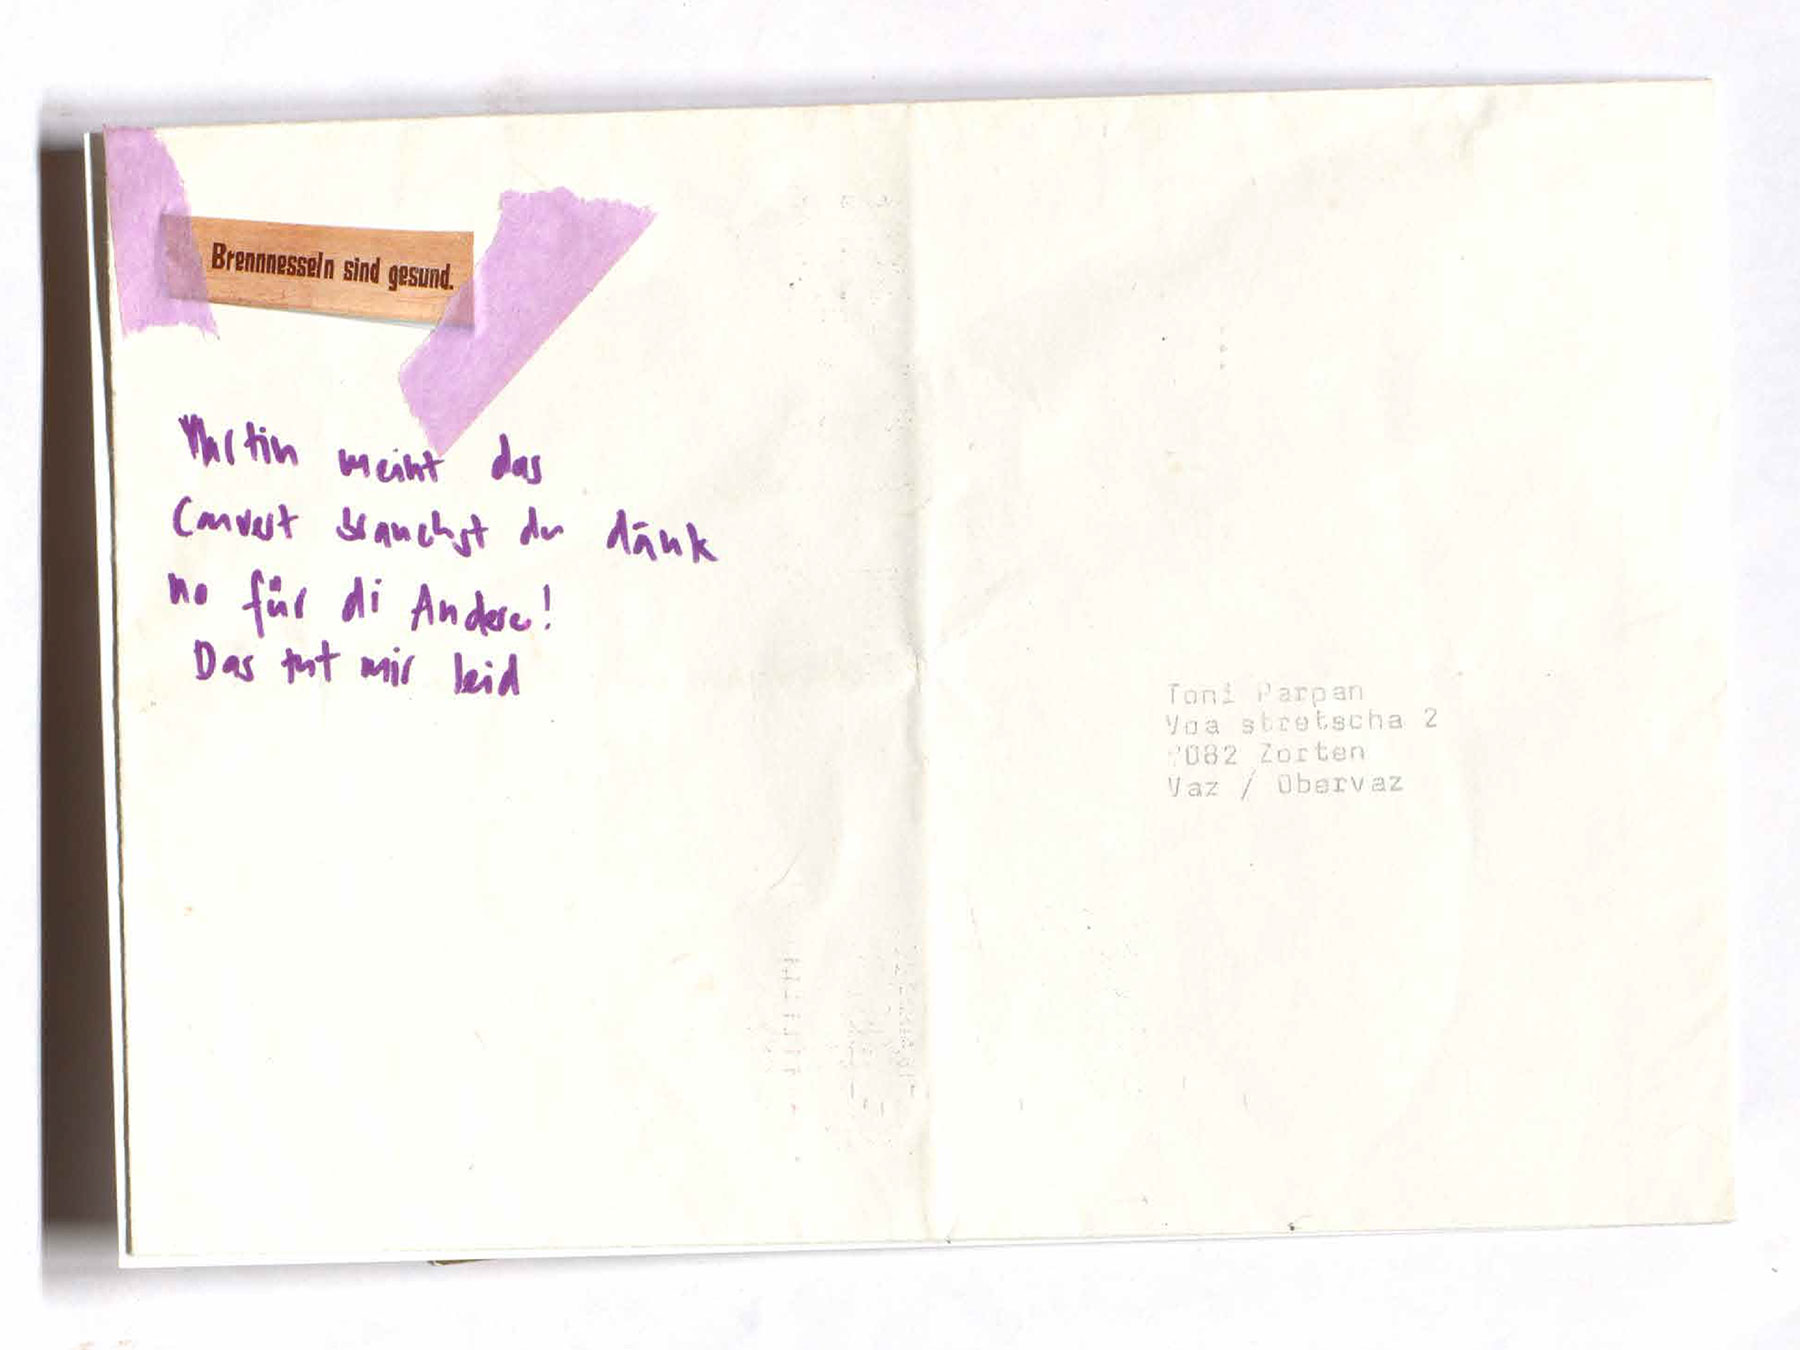 Brennnesseln sind gesund.
Martin meint das
Couvert brauchst du dänk
no für di Andere!
Das tut mir leid
Toni Parpan
Voa stretscha 2
7082 Zorten
Vaz / Obervaz